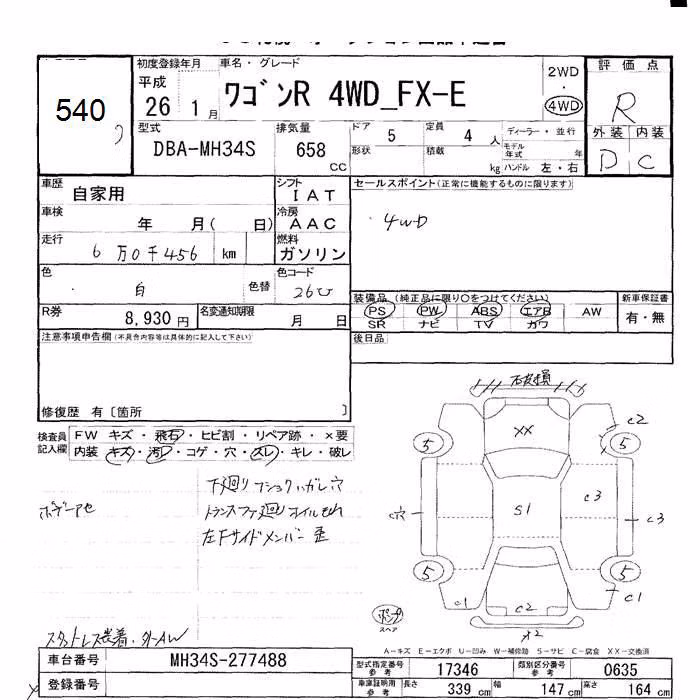 540
初度登録年月
平成
26 1 月
車名・グレード
ワゴンR 4WD_FX-E
2WD
・
4WD
評価点
R
外装 内装
D C
型式
DBA-MH34S
排気量
658
CC
ドア 5
形状
定員 4 人
積載 kg
ディーラー・並行
モデル年式 年
ハンドル 左・右
車歴
自家用
シフト
IAT
車検
年 月( 日)
冷房
AAC
走行
6万0千456 km
燃料
ガソリン
色
白
色替
色コード
26U
R券
8,930円
名変通知期限
月 日
セールスポイント(正常に機能するものに限ります)
・4WD
装備品(純正品に限り○をつけてください)
PS PW ABS エアB AW
SR ナビ TV カワ
新車保証書
有・無
後日品
注意事項申告欄(不具合内容等は具体的に記入して下さい)
修復歴 有〔箇所 〕
検査員記入欄
FW キズ・飛石・ヒビ割・リペア跡・×要
内装 キズ・汚レ・コゲ・穴・スレ・キレ・破レ
下廻り フショク ハガレ 穴
トランスファ廻り オイルもれ
左Fサイドメンバー 歪
スタットレス装着・外AW
石破損
XX
C2
5
5
C穴
S1
C3
C3
5
5
C1
C2
C1
X2
ポンプ
スペア
A-キズ E-エクボ U-凹み W-補修跡 S-サビ C-腐食 XX-交換済
車台番号
MH34S-277488
登録番号
型式指定番号
参考
17346
類別区分番号
参考
0635
車庫証明用
参考
長さ 339 cm
幅 147 cm
高さ 164 cm